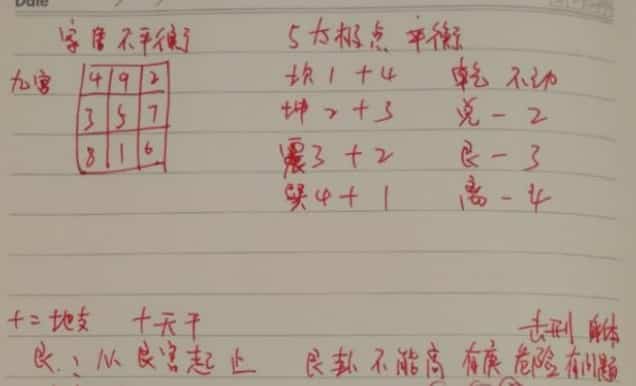 Date
字唐不平衡 5为极点 平衡
九宫 4 9 2 坎1+4 乾 不动
3 5 7 坤2+3 兑-2
8 1 6 震3+2 艮-3
巽4+1 离-4
十二地支 十天干 击刑
艮:从艮宫起止 艮卦不能高 有庚 危险 有问题